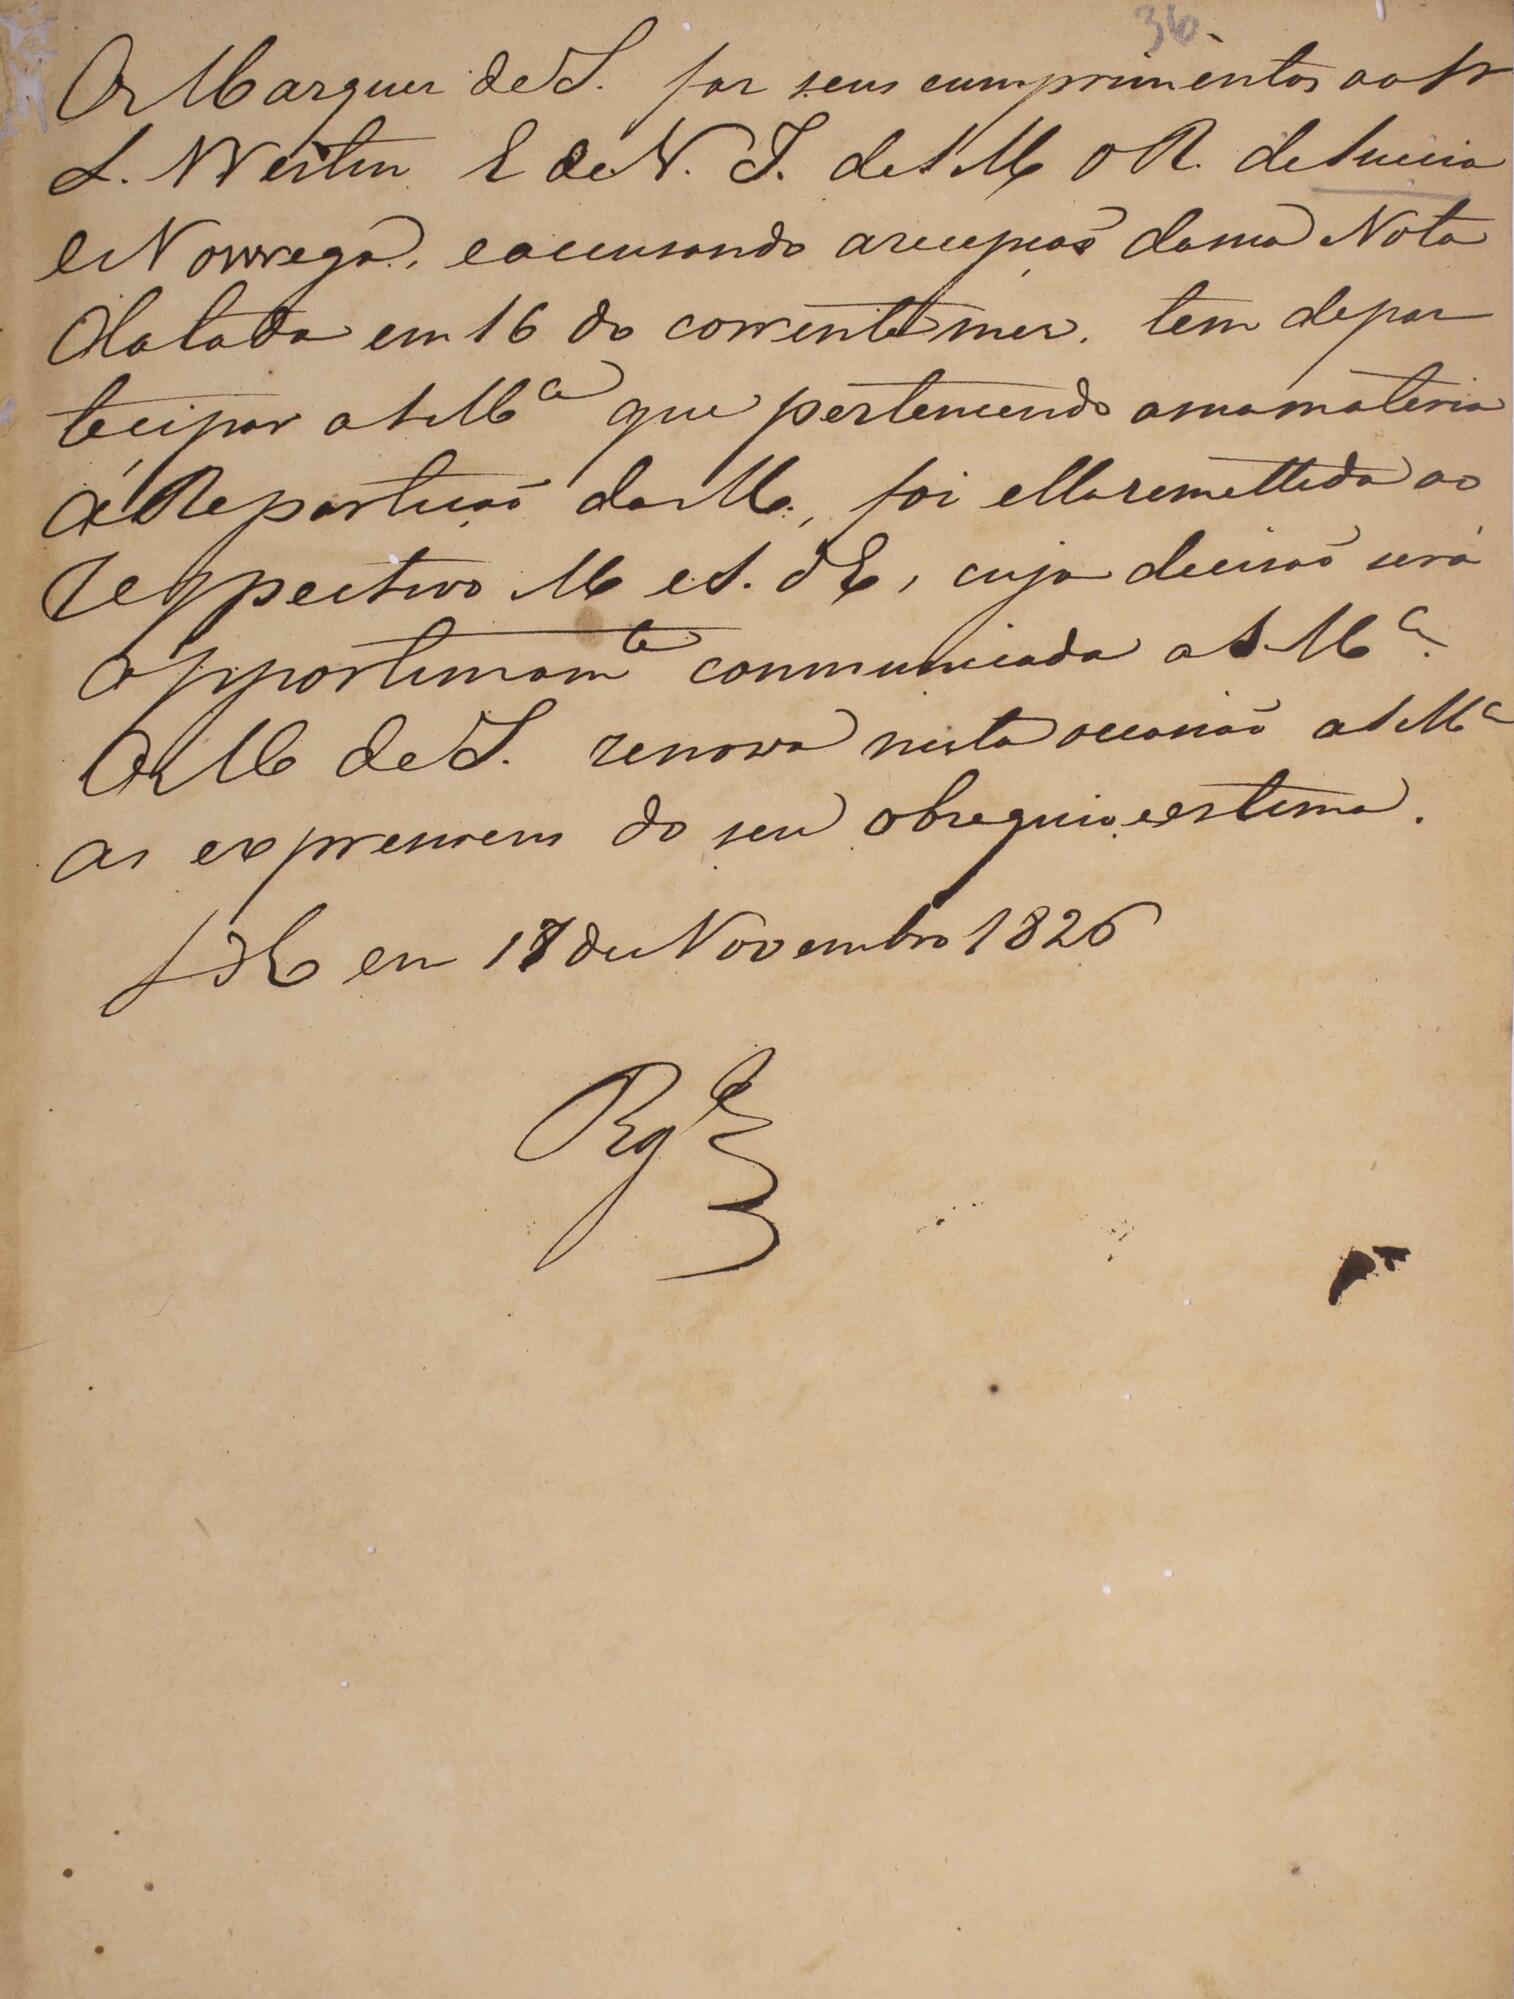 36.
O Marquez de S. faz seus cumprimentos ao Sr
L. Westin E de N. I. de S M O R. de Suecia
e Norrega, e accusando a recepção da sua Nota
datada em 16 do corrente mez, tem de par
tecipar a S M.ce que pertencendo a sua materia
á Repartição da M., foi ella remettida ao
respectivo M e S. d'E, cuja decisão será
opportunam.te communicada a S. M.ce
O M de S. renova nesta occasião a S M.ce
as expressoens do seu obsequio e estima.
em 17 de Novembro 1826